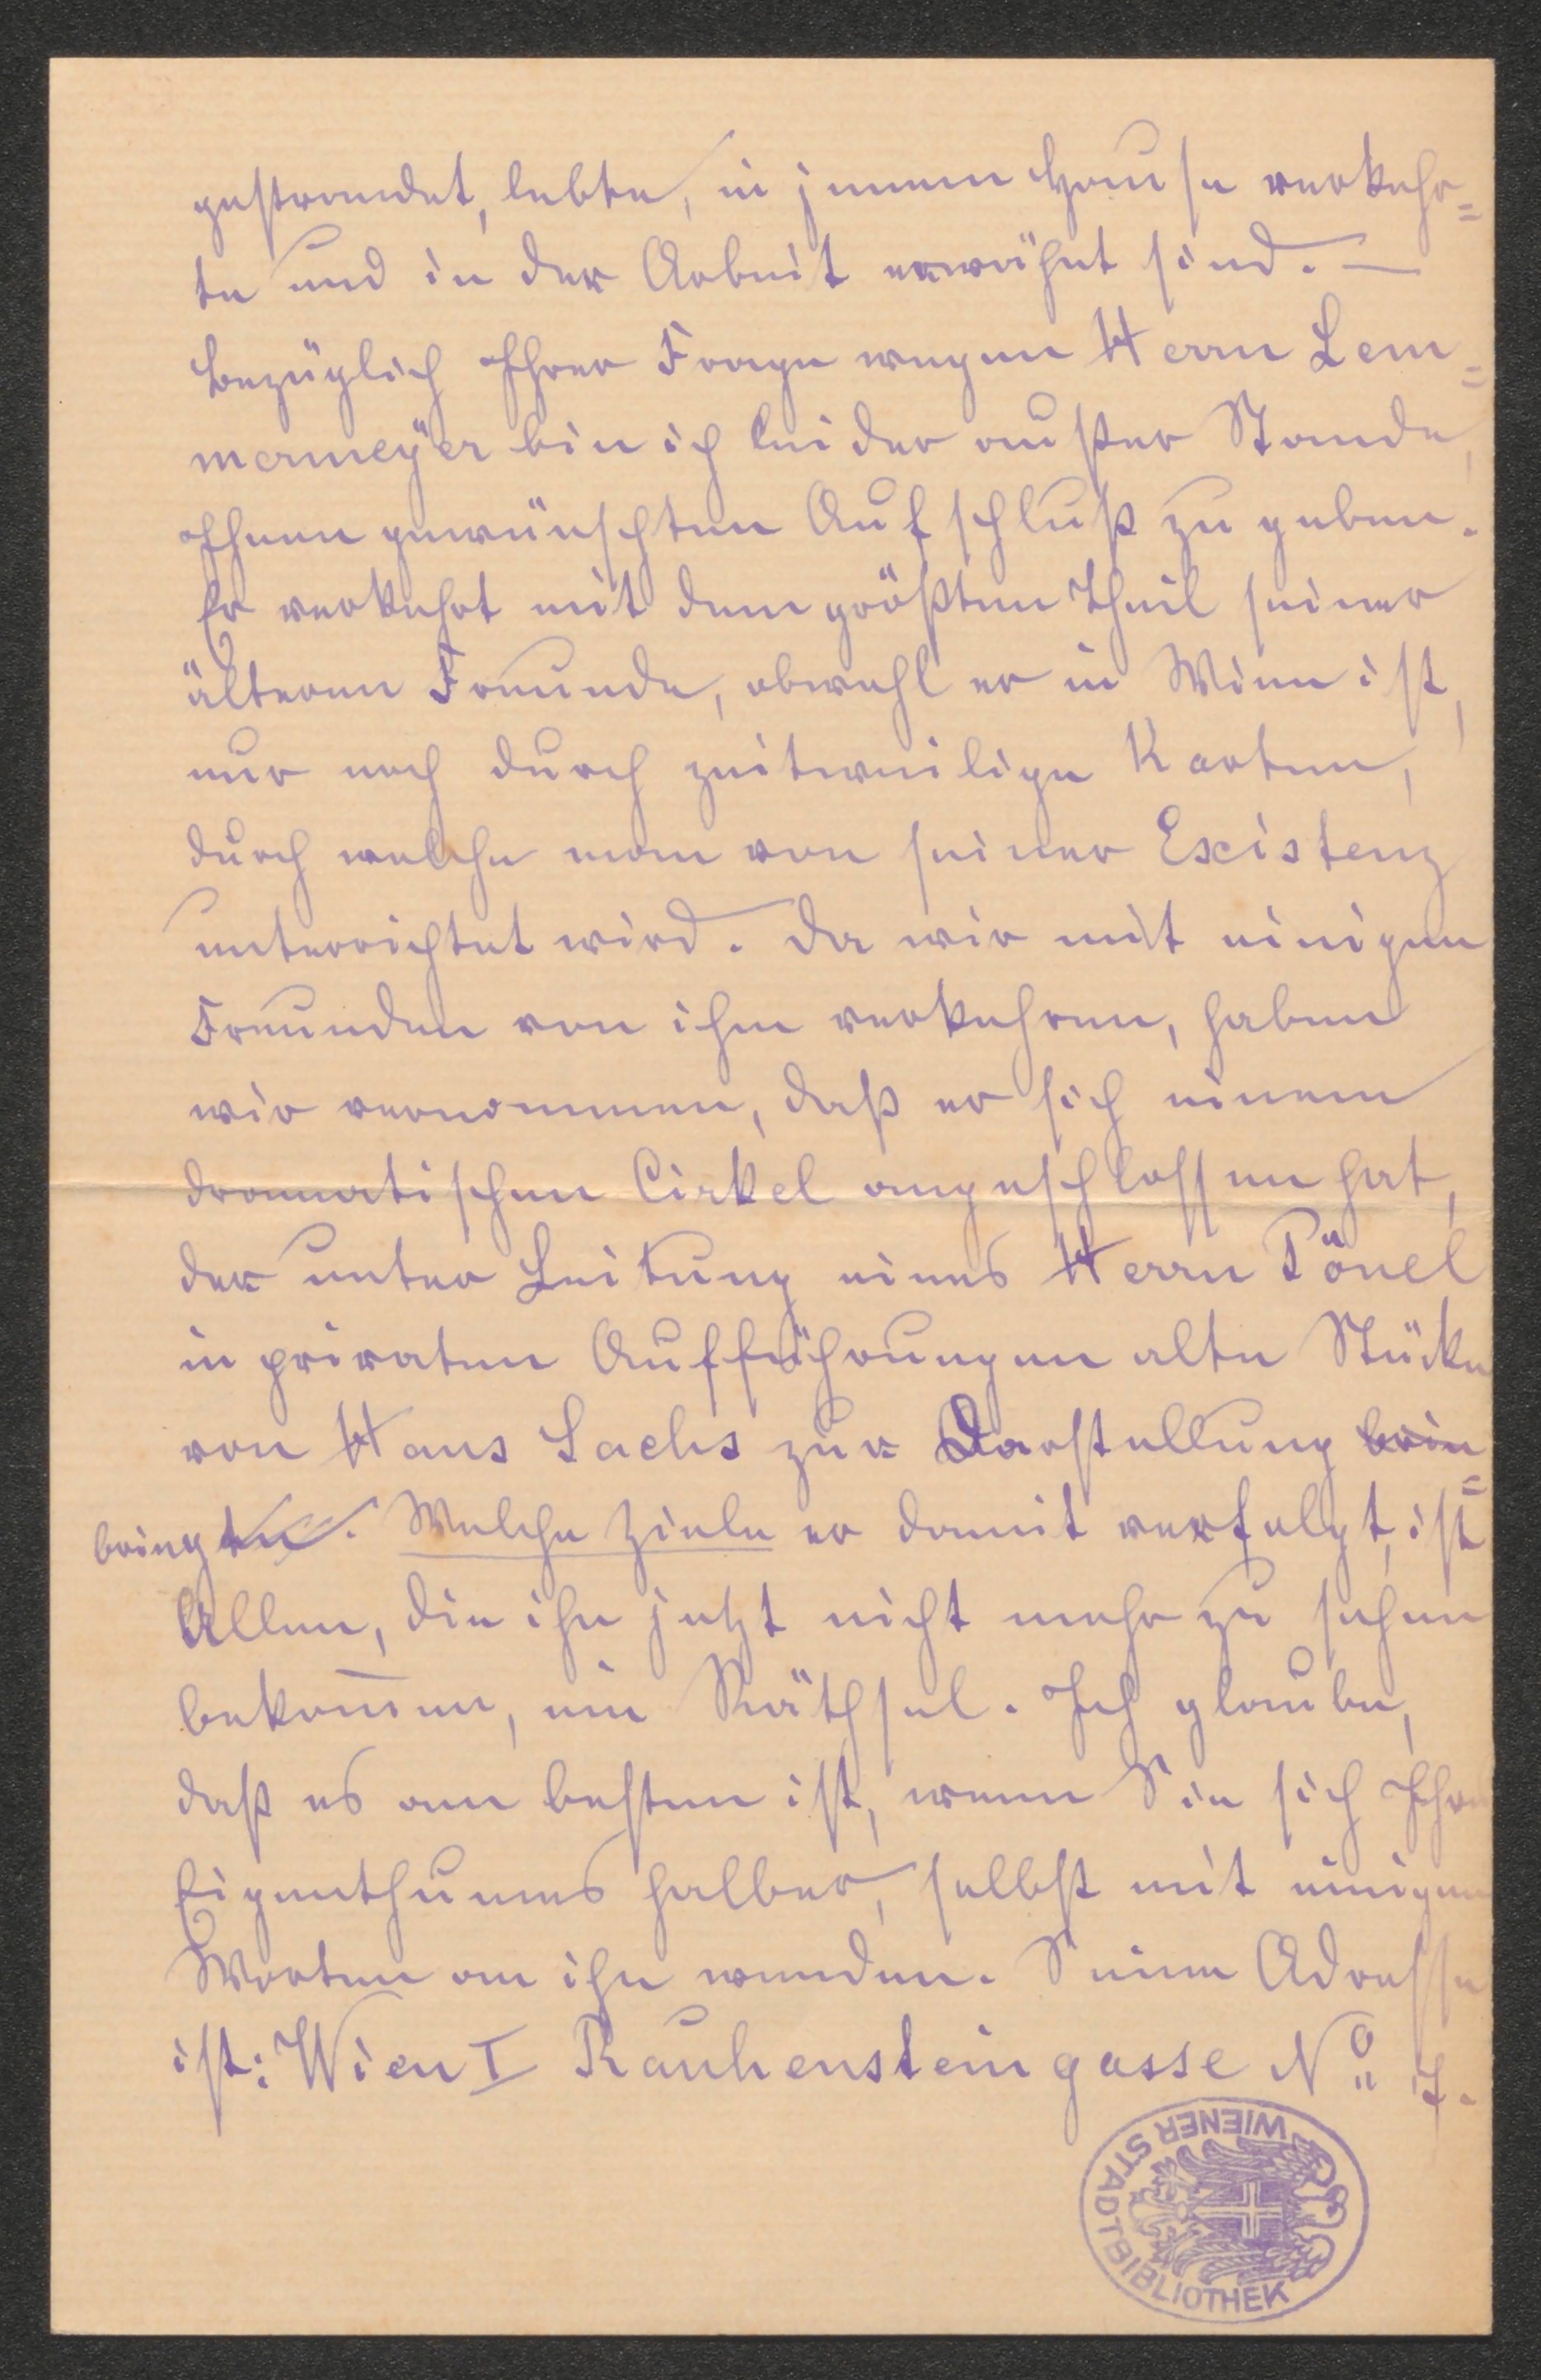 gestrandet, lebte, in jenem Hause verkehr=
te und in der Arbeit erwähnt sind. —
Bezüglich Ihrer Frage wegen Herrn Lem=
mermeÿer bin ich leider außer Stande,
Ihnen gewünschten Aufschluß zu geben.
Er verkehrt mit dem größten Theil seiner
älteren Freunde, obwohl er in Wien ist,
nur noch durch zeitweilige Karten,
durch welche man von seiner Existenz
unterrichtet wird. Da wir mit einigen
Freunden von ihm verkehren, haben
wir vernommen, daß er sich einem
dramatischen Cirkel angeschlossen hat,
der unter Leitung eines Herrn Pönel
in privaten Aufführungen alte Stücke
von Hans Sachs zur Darstellung brin=
bringt. Welche Ziele er damit verfolgt, ist
Allen, die ihn jetzt nicht mehr zu sehen
bekom̄en, ein Räthsel. Ich glaube,
daß es am besten ist, wenn Sie sich Ihres
Eigenthumes halber, selbst mit einigen
Worten an ihn wenden. Seine Adresse
ist: Wien I Rauhensteingasse No 7.
WIENER STADTBIBLIOTHEK